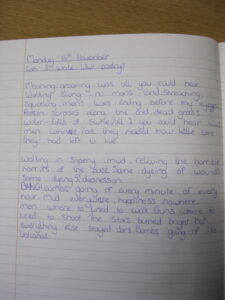 Monday 15th November
Can I write WW1 poetry?
Moaning, groaning was all you could hear
walking along no mans land, screaching,
squeaking, mens lives ending before my eyes.
Rotten corpses along the cold, dead grass
water-falls of smoke all I you could hear
men as they realised how little time
they had left to live.
Walking in slipery mud, the horrible
horrors of the past some dyeing of wounds
some dyeing of depression.
BANG! bombs going of every minute of every
hour mud everywhere, happiness nowhere
men where to used to walk guns where to
used to shoot the stars burned bright but
everything else stayed dark. Bombs going of like